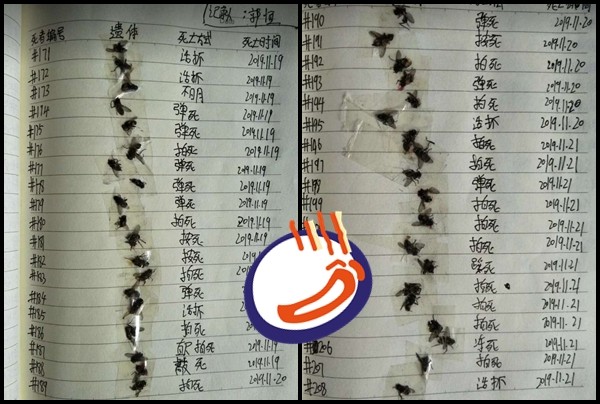 记录:
死者编号 遗体 死亡方式 死亡时间
#171 活抓 2019.11.19
#172 活抓 2019.11.19
#173 不明 2019.11.19
#174 弹死 2019.11.19
#175 弹死 2019.11.19
#176 拍死 2019.11.19
#177 弹死 2019.11.19
#178 弹死 2019.11.19
#179 弹死 2019.11.19
#180 拍死 2019.11.19
#181 按死 2019.11.19
#182 按死 2019.11.19
#183 拍死 2019.11.19
#184 弹死 2019.11.19
#185 活抓 2019.11.19
#186 拍死 2019.11.19
#187 拍死 2019.11.19
#188 敲死 2019.11.19
#189 拍死 2019.11.20
#190 弹死 2019.11.20
#191 按死 2019.11.20
#192 拍死 2019.11.20
#193 弹死 2019.11.20
#194 拍死 2019.11.20
#195 活抓 2019.11.20
#196 拍死 2019.11.21
#197 拍死 2019.11.21
#198 弹死 2019.11.21
#199 拍死 2019.11.21
拍死 2019.11.21
拍死 2019.11.21
2019.11.21
拍死 2019.11.21
拍死 2019.11.21
拍死 2019.11.21
#206 2019.11.21
#207 拍死 2019.11.21
#208 活抓 2019.11.21